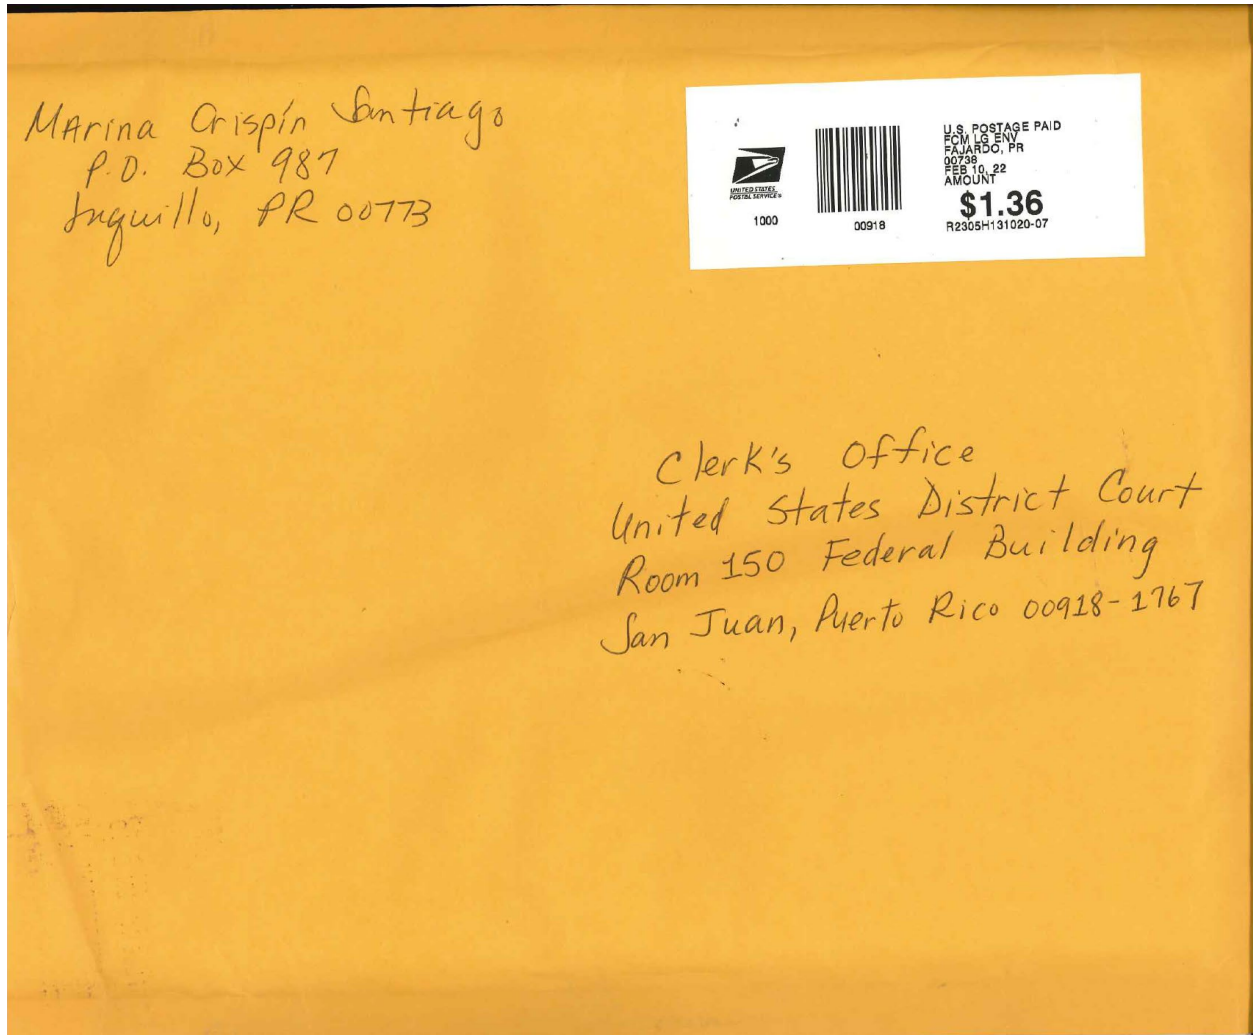 Marina Crispín Santiago
P.O. Box 987
Luquillo, PR 00773
UNITED STATES
POSTAL SERVICE®
1000
00918
U.S. POSTAGE PAID
FCM LG ENV
FAJARDO, PR
00738
FEB 10, 22
AMOUNT
$1.36
R2305H131020-07
Clerk's Office
United States District Court
Room 150 Federal Building
San Juan, Puerto Rico 00918-1767